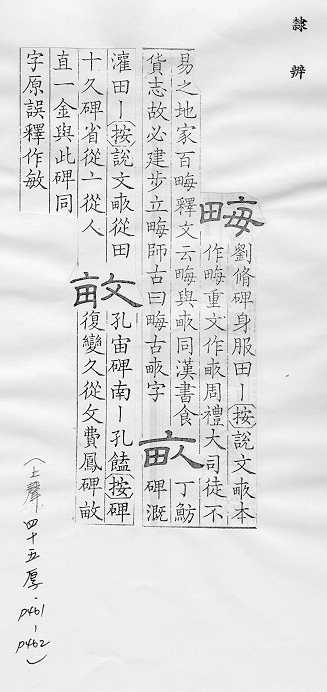 隸辨
畮
劉脩碑身服田丨按說文畞本
作畮重文作畞周禮大司徒不
易之地家百畮釋文云畮與畞同漢書食
貨志故必建步立畮師古曰畮古畞字
丁魴
碑溉
灌田丨按說文畞從田
十久碑省從亠從人
畝
孔宙碑南丨孔饁按碑
復變久從攵費鳳碑畝
直一金與此碑同
字原誤釋作敏
(上聲四十五厚．p461-p462)